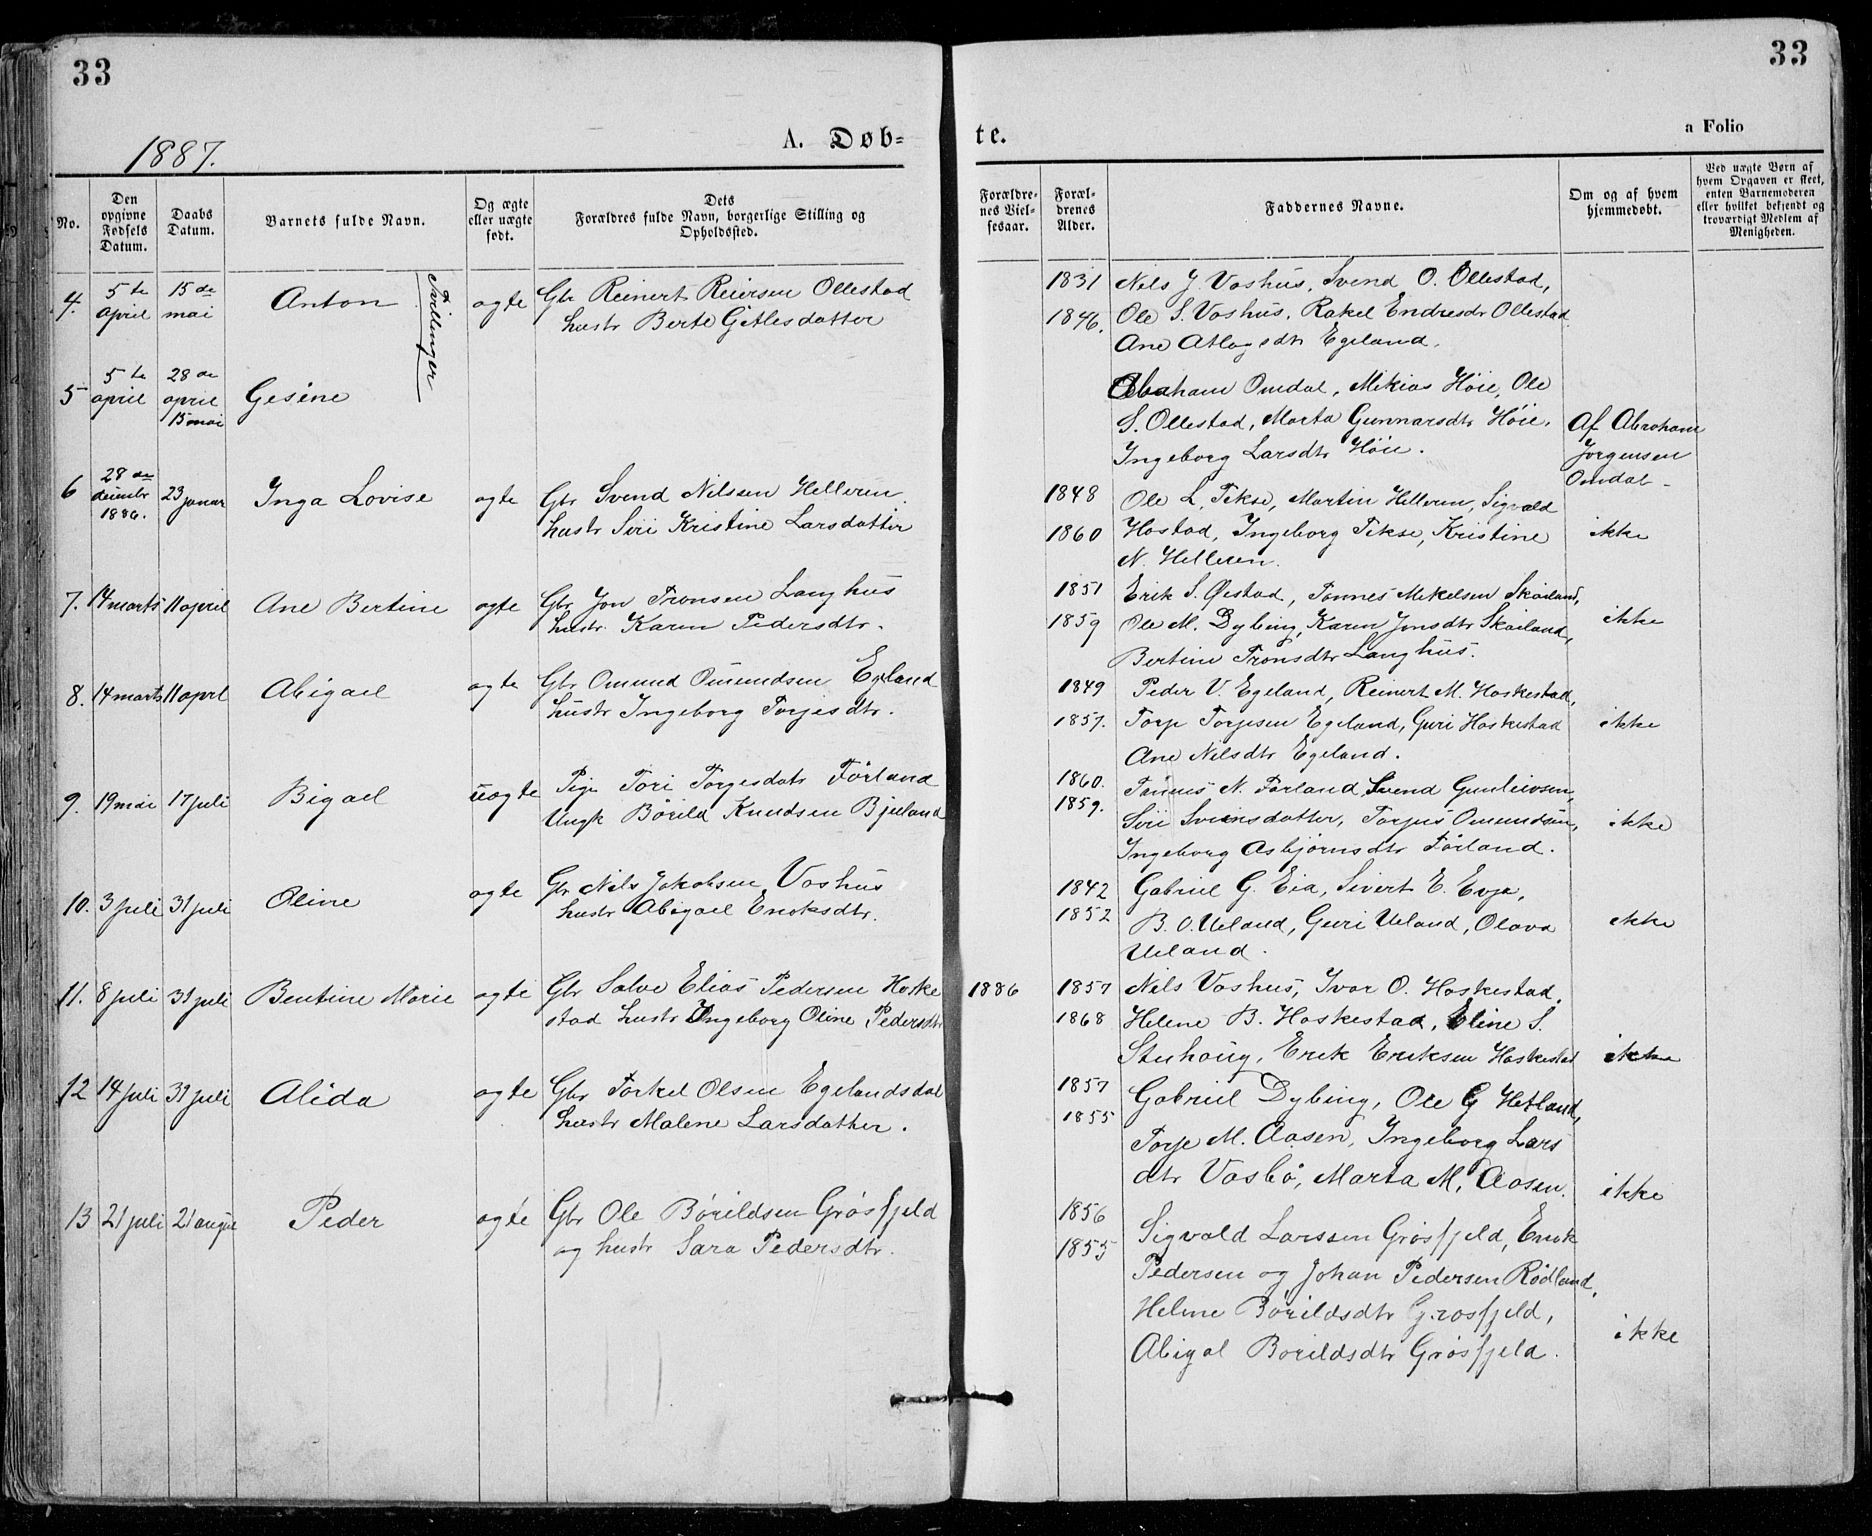 33
33
1887.
A. Døb-
te.
a Folio
No.
Den opgivne Fødsels Datum.
Daabs Datum.
Barnets fulde Navn.
Og ægte eller uægte født.
Dets Forældres fulde Navn, borgerlige Stilling og Opholdssted.
Forældrenes Vielsesaar.
Forældrenes Alder.
Faddernes Navne.
Om og af hvem hjemmedøbt.
Ved uægte Børn af hvem Opgaven er skeet, enten Barnemoderen eller hvilket bekjendt og troværdigt Medlem af Menigheden.
4. 5te april 15de mai Anton Tvillinger ægte Gbr Reinert Reiersen Ollestad
hustr Berte Gitlesdatter
1831 Nils J. Voshus, Svend O. Ollestad,
1846. Ole S. Voshus, Rakel Endresdr Ollestad
Ane Atlagsdtr Egeland.
5 5te april 28de april 15 mai Gesine
Abraham Omdal, Mikias Höie, Ole
S. Ollestad, Marta Gunnarsdtr Höie,
Ingeborg Larsdtr Höie.
Af Abraham
Jørgensen
Omdal
6 28de decmbr 1886. 23 januar Inga Lovise ægte Gbr Svend Nilssen Helleren
hustr Siri Kristine Larsdatter
1848 Ole L. Tekse, Martin Helleren, Sigvald
1860 Hastad, Ingeborg Tekse, Kristine ikke
N. Helleren.
7. 14 marts 11 april Ane Bertine ægte Gbr Jon Tronsen Langhus
hustr. Karen Pedersdtr.
1851 Erik S. Østad, Tønnes Mekelsen Skailand,
1859 Ole M. Dybing, Karen Jonsdtr Skailand, ikke
Bertine Tronsdtr Langhus.
8. 14 marts 11 aprl Abigael ægte Gbr Omund Omundsen Egeland
hustr Ingeborg Torjesdtr.
1849 Peder V. Egeland, Reinert M. Hoskestad,
1857. Torje Torjesen Egeland, Guri Hoskestad ikke
Ane Nilsdtr Egeland.
9. 19 mai 17 juli Bigael uægte Pige Tori Torgesdatr Førland
Ungk Börild Knudsen Bjuland
1860. Tönnes N. Førland, Svend Gunleivsen,
1859. Siri Svensdatter, Torjus Omundsen, ikke
Ingeborg Asbjörnsdtr Förland.
10. 3 juli 31 juli Oline ægte Gbr Nils Jakobsen Voshus
hustr Abigael Enoksdtr.
1842 Gabriel G. Eia, Sivert E. Evja,
1852 B. O. Ueland, Guri Ueland, Olava ikke
Ueland.
11. 8 juli 31 juli Bentine Marie ægte Gbr Salve Elias Pedersen Hoske
stad hustr Ingeborg Oline Pedersdtr
1886 1857 Nils Voshus, Ivar O. Hoskestad,
1868 Helene B. Hoskestad, Eline S.
Erik Eriksen Hoskestad ikke
12 14 juli 31 juli Alida ægte Gbr Torkel Olsen Egelandsdal
hustr Malene Larsdatter.
1857 Gabriel Dybing, Ole G Hetland,
1855 Torje M. Aasen, Ingeborg Lars
dtr Vasbö, Marta M. Aasen. ikke
13 21 juli 21 august Peder ægte Gbr Ole Börildsen Grösfjeld
og hustr Sara Pedersdtr.
1856 Sigvald Larssen Grösfjeld, Enok
1855 Pedersen og Johan Pedersen Rödland,
Helene Börildsdtr Grosfjeld,
Abigal Börildsdtr Grösfjeld. ikke